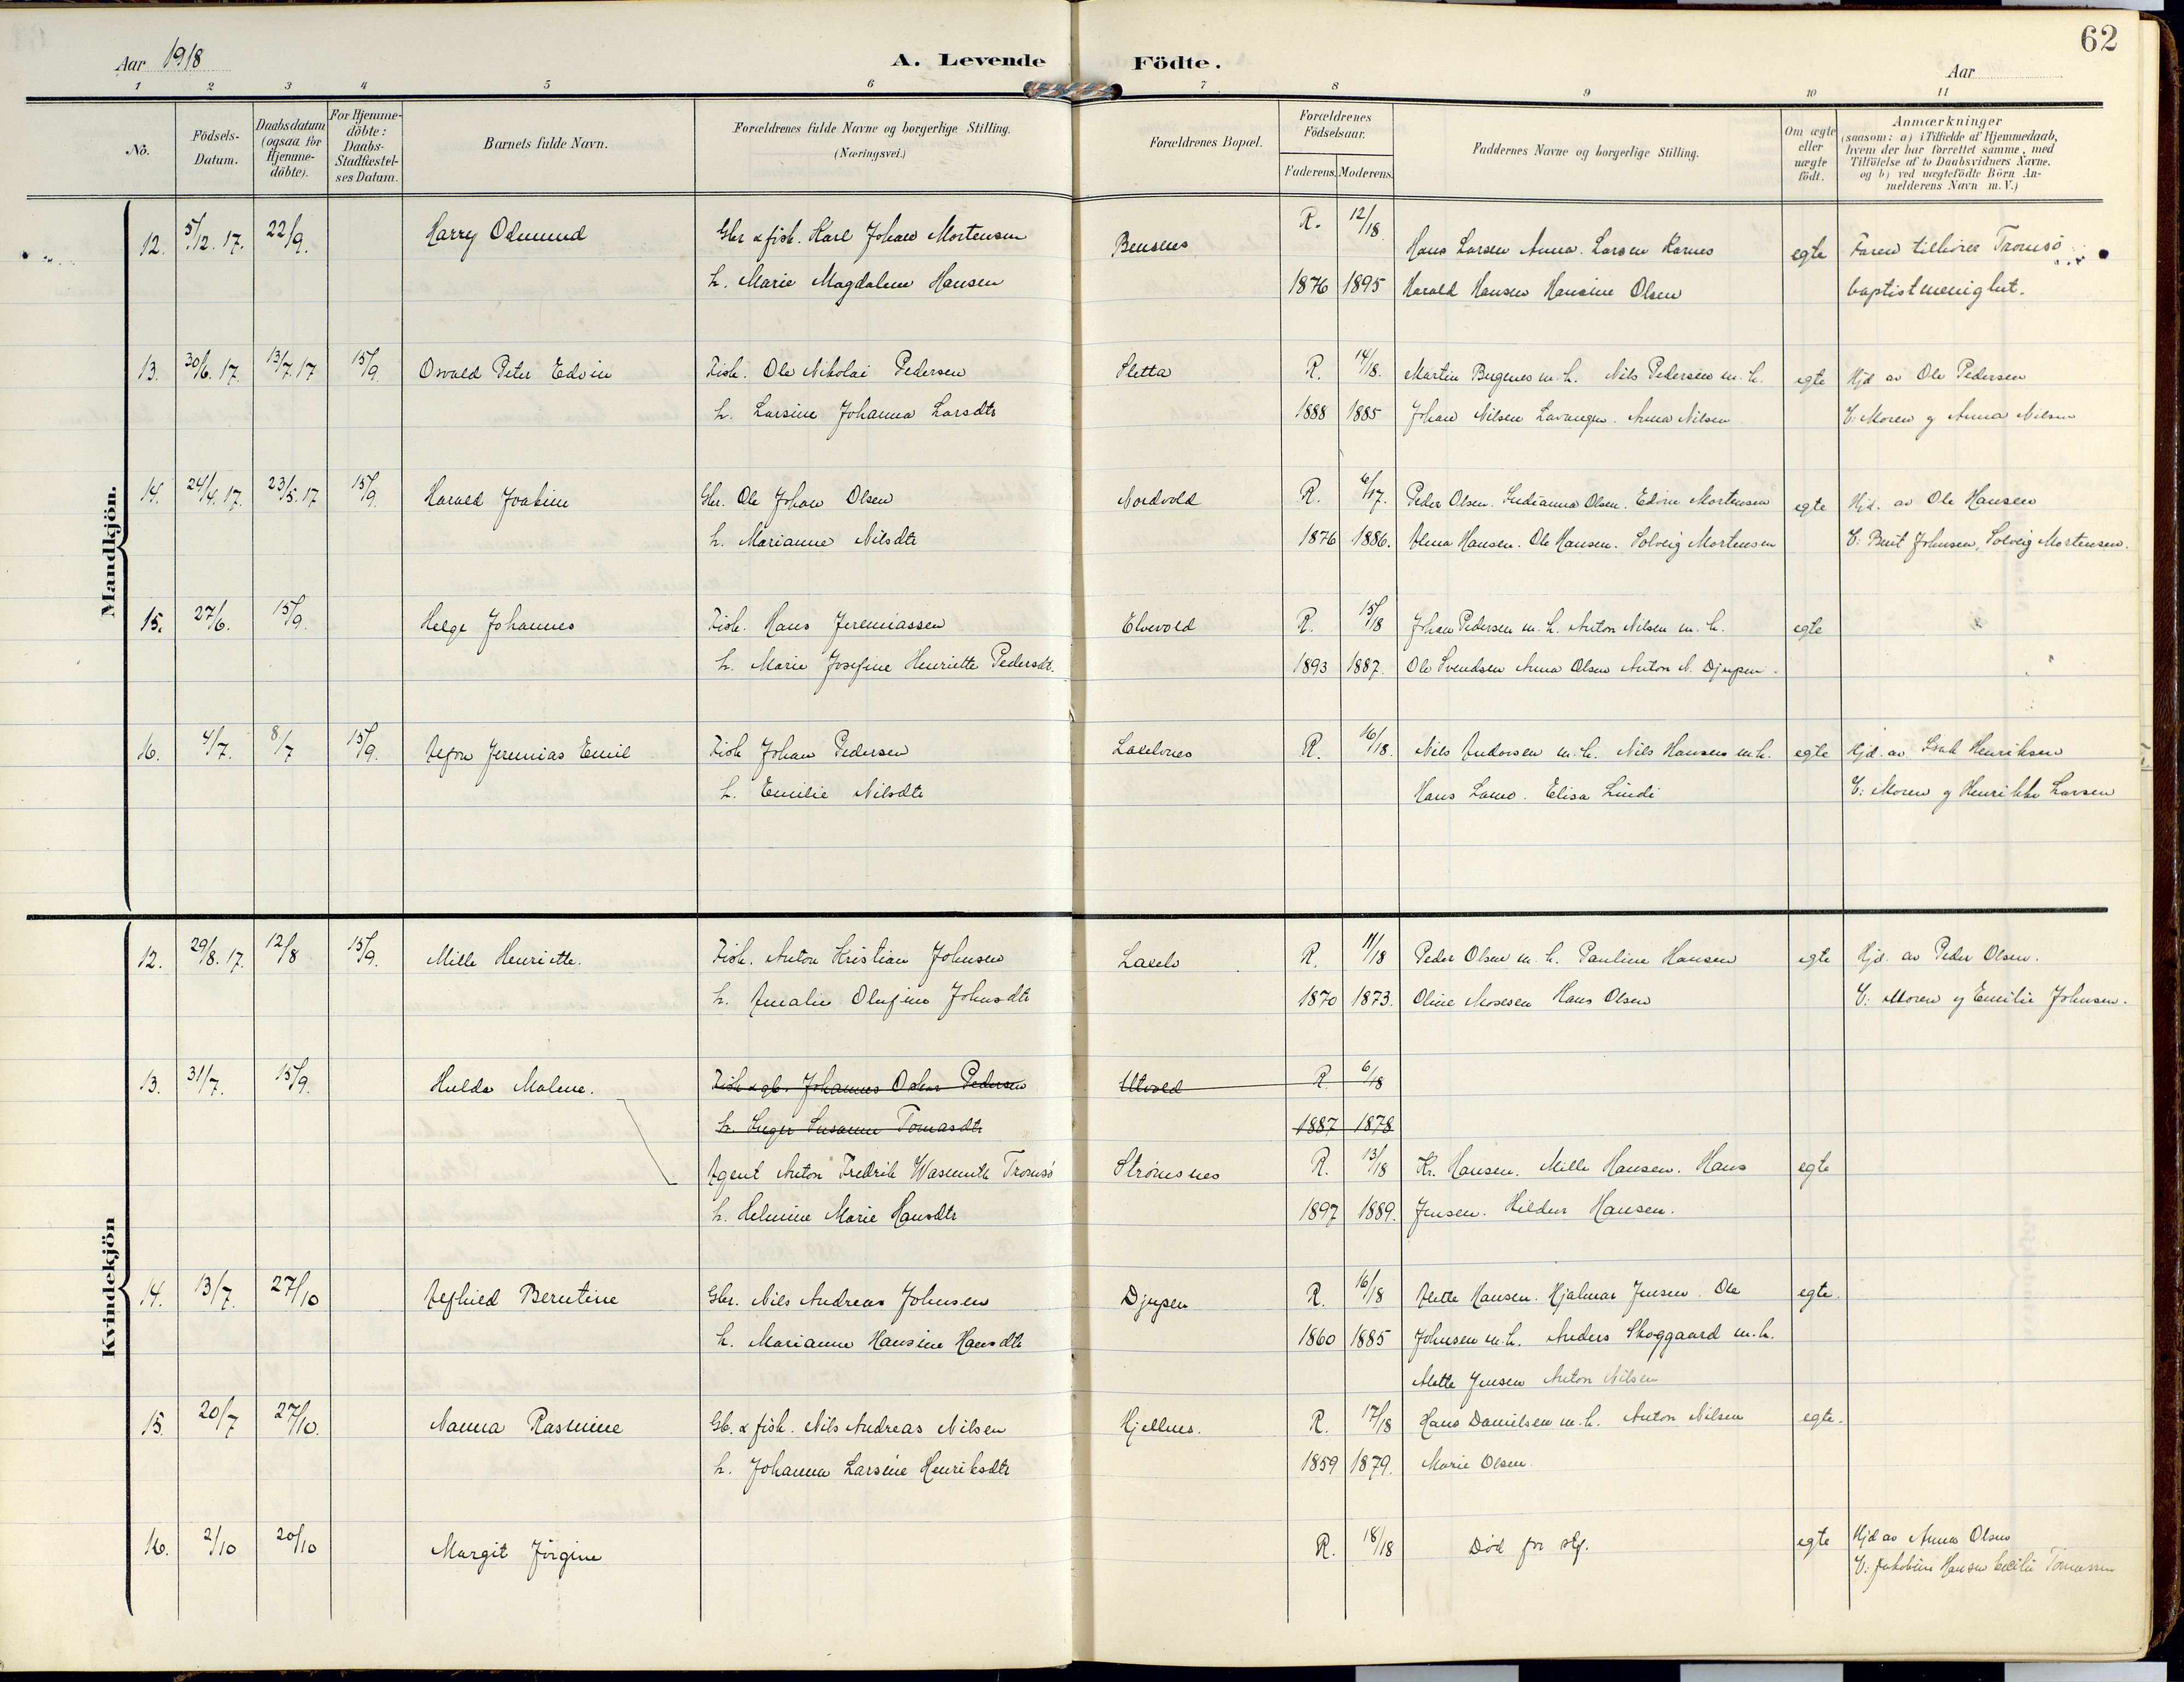 62
Aar 1918
A. Levende Födte.
Aar
1 2 3 4 5 6 7 8 9 10 11
No.
Födsels-Datum.
Daabsdatum (ogsaa for Hjemme-döbte).
For Hjemme-döbte: Daabs-Stadfæstel-ses Datum.
Barnets fulde Navn.
Forældrenes fulde Navne og borgerlige Stilling.
(Næringsvei.)
Forældrenes Bopæl.
Forældrenes Födselsaar.
Faderens. Moderens.
Faddernes Navne og borgerlige Stilling.
Om ægte eller uægte födt.
Anmærkninger
(saasom: a) i Tilfælde af Hjemmedaab,
hvem der har forrettet samme, med
Tilföielse af to Daabsvidners Navne.
og b) ved uægtefödte Börn An-
melderens Navn m. V.)
Mandkjön.
12. 5/12. 17. 22/9. Harry Odmund Gbr & fisk. Karl Johan Mortensen Bensnes R. 12/18. Hans Larsen Anna Larsen Karnes egte Faren tilhører Tromsø
h. Marie Magdalene Hansen 1876 1895 Harald Hansen Hansine Olsen baptistmenighet.
13. 30/6. 17. 13/7. 17 15/9. Osvald Peter Edvin Fisk. Ole Nikolai Pedersen Sletta R. 14/18. Martin Bugenes m. h. Nils Pedersen m. h. egte Hjd av Ole Pedersen
h. Larsine Johanna Larsdtr 1888 1885 Johan Nilsen Lavangen. Anna Nilsen V: Moren og Anna Nilsen
14. 24/4. 17. 23/5. 17 15/9. Harald Joakim Gbr. Ole Johan Olsen Nordvold R. 6/17. Peder Olsen. Indianna Olsen. Edvin Mortensen egte Hjd. av Ole Hansen
h. Marianne Nilsdtr 1876 1886. Alma Hansen. Ole Hansen. Solveig Mortensen V: Berit Johnsen, Solveig Mortensen.
15. 27/6. 15/9. Helge Johannes Fisk. Hans Jeremiassen Elvevold R. 15/18 Johan Pedersen m. h. Anton Nilsen m. h. egte
h. Marie Josefine Henriette Pedersdt. 1893 1887. Ole Svendsen Anna Olsen Anton N. Djupen.
16. 4/7. 8/7 15/9. Jeremias Emil Fisk Johan Pedersen Lakselvnes R. 16/18. Nils Andersen m. h. Nils Hansen m. h. egte Hjd. av Isak Henriksen
h. Emilie Nilsdtr Hans Elisa Lindi V: Moren og Henrikke Larsen
Kvindekjön
12. 29/8. 17. 12/8 15/9. Mille Henriette. Fisk. Anton Kristian Johnsen Lakselv R. 11/18 Peder Olsen m. h. Pauline Hansen egte Hjd. av Peder Olsen.
h. Amalie Olufine Johnsdtr 1870 1873. Oline Mosesen Hans Olsen V: Moren og Emilie Johnsen.
13. 31/7. 15/9. Hulda Malene. Fisk & gb. Johannes Oskar Pedersen Utvold R. 6/18
h. Inger Susanne Tomasdtr 1887 1878
Agent Anton Fredrik Wasmuth Tromsö Strömsnes R. 13/18 Kr. Hansen. Mille Hansen. Hans egte
h. Helmine Marie Hansdtr 1897 1889. Jensen. Hildur Hansen.
14. 13/7. 27/10 Asfhild Berntine Gbr. Nils Andreas Johnsen Djupen R. 16/18 Hansen. Hjalmar Jensen. Ole egte.
h. Marianne Hansine Hansdtr 1860 1885 Johnsen m. h. Anders Skoggaard m. h.
Mette Jensen Anton Nilsen
15. 20/7 27/10. Nanna Rasmine Gb. & fisk. Nils Andreas Nilsen Hjellnes. R. 17/18 Hans Danielsen m. h. Anton Nilsen egte.
h. Johanna Larsine Henriksdtr 1859 1879. Marie Olsen
16. 2/10 20/10 Margit Jörgine R. 18/18 Död for stf. egte Hjd av Anna Olsen
V: Jakobine Hansen Cecilie Tomassen